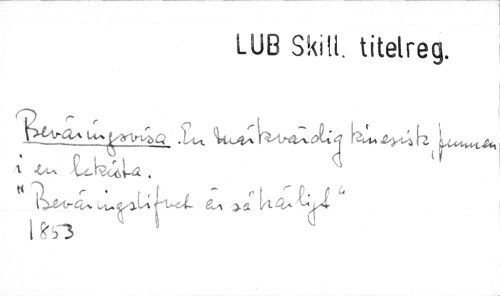 LUB Skill. titelreg.
Beväringsvisa. En märkvärdig kinesisk, funnen
i en lekista.
"Beväringslifvet är så härligt"
1853